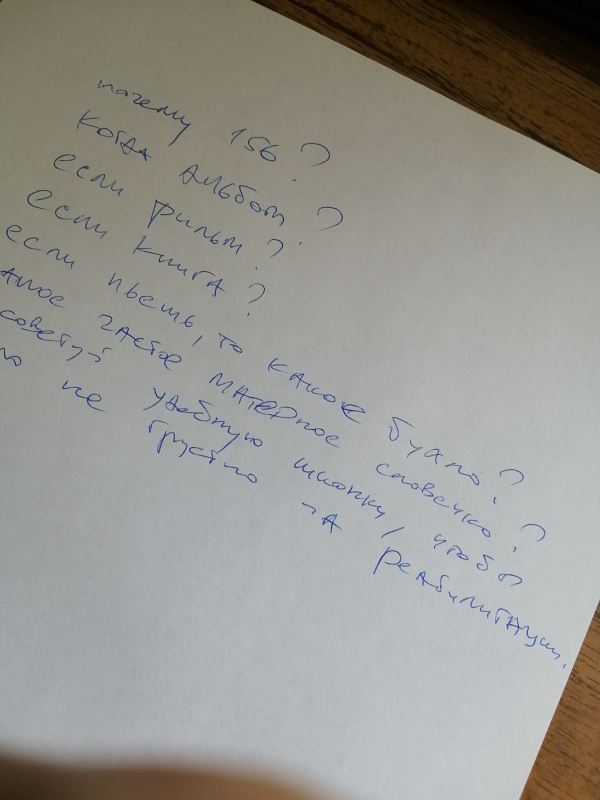 почему 156?
когда альбом?
если фильм?
если книга?
если пьешь, то какое бухло?
амое частое матерное словечко?
советуй удобную шмотку, чтобы
ло не грустно на реабилитации.